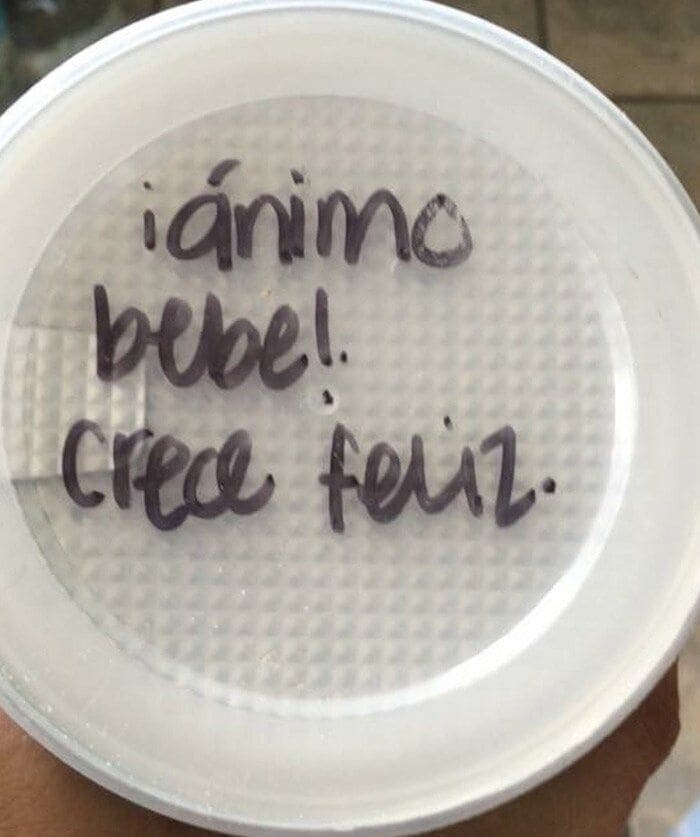 ¡ánimo
bebe!.
crece feliz.